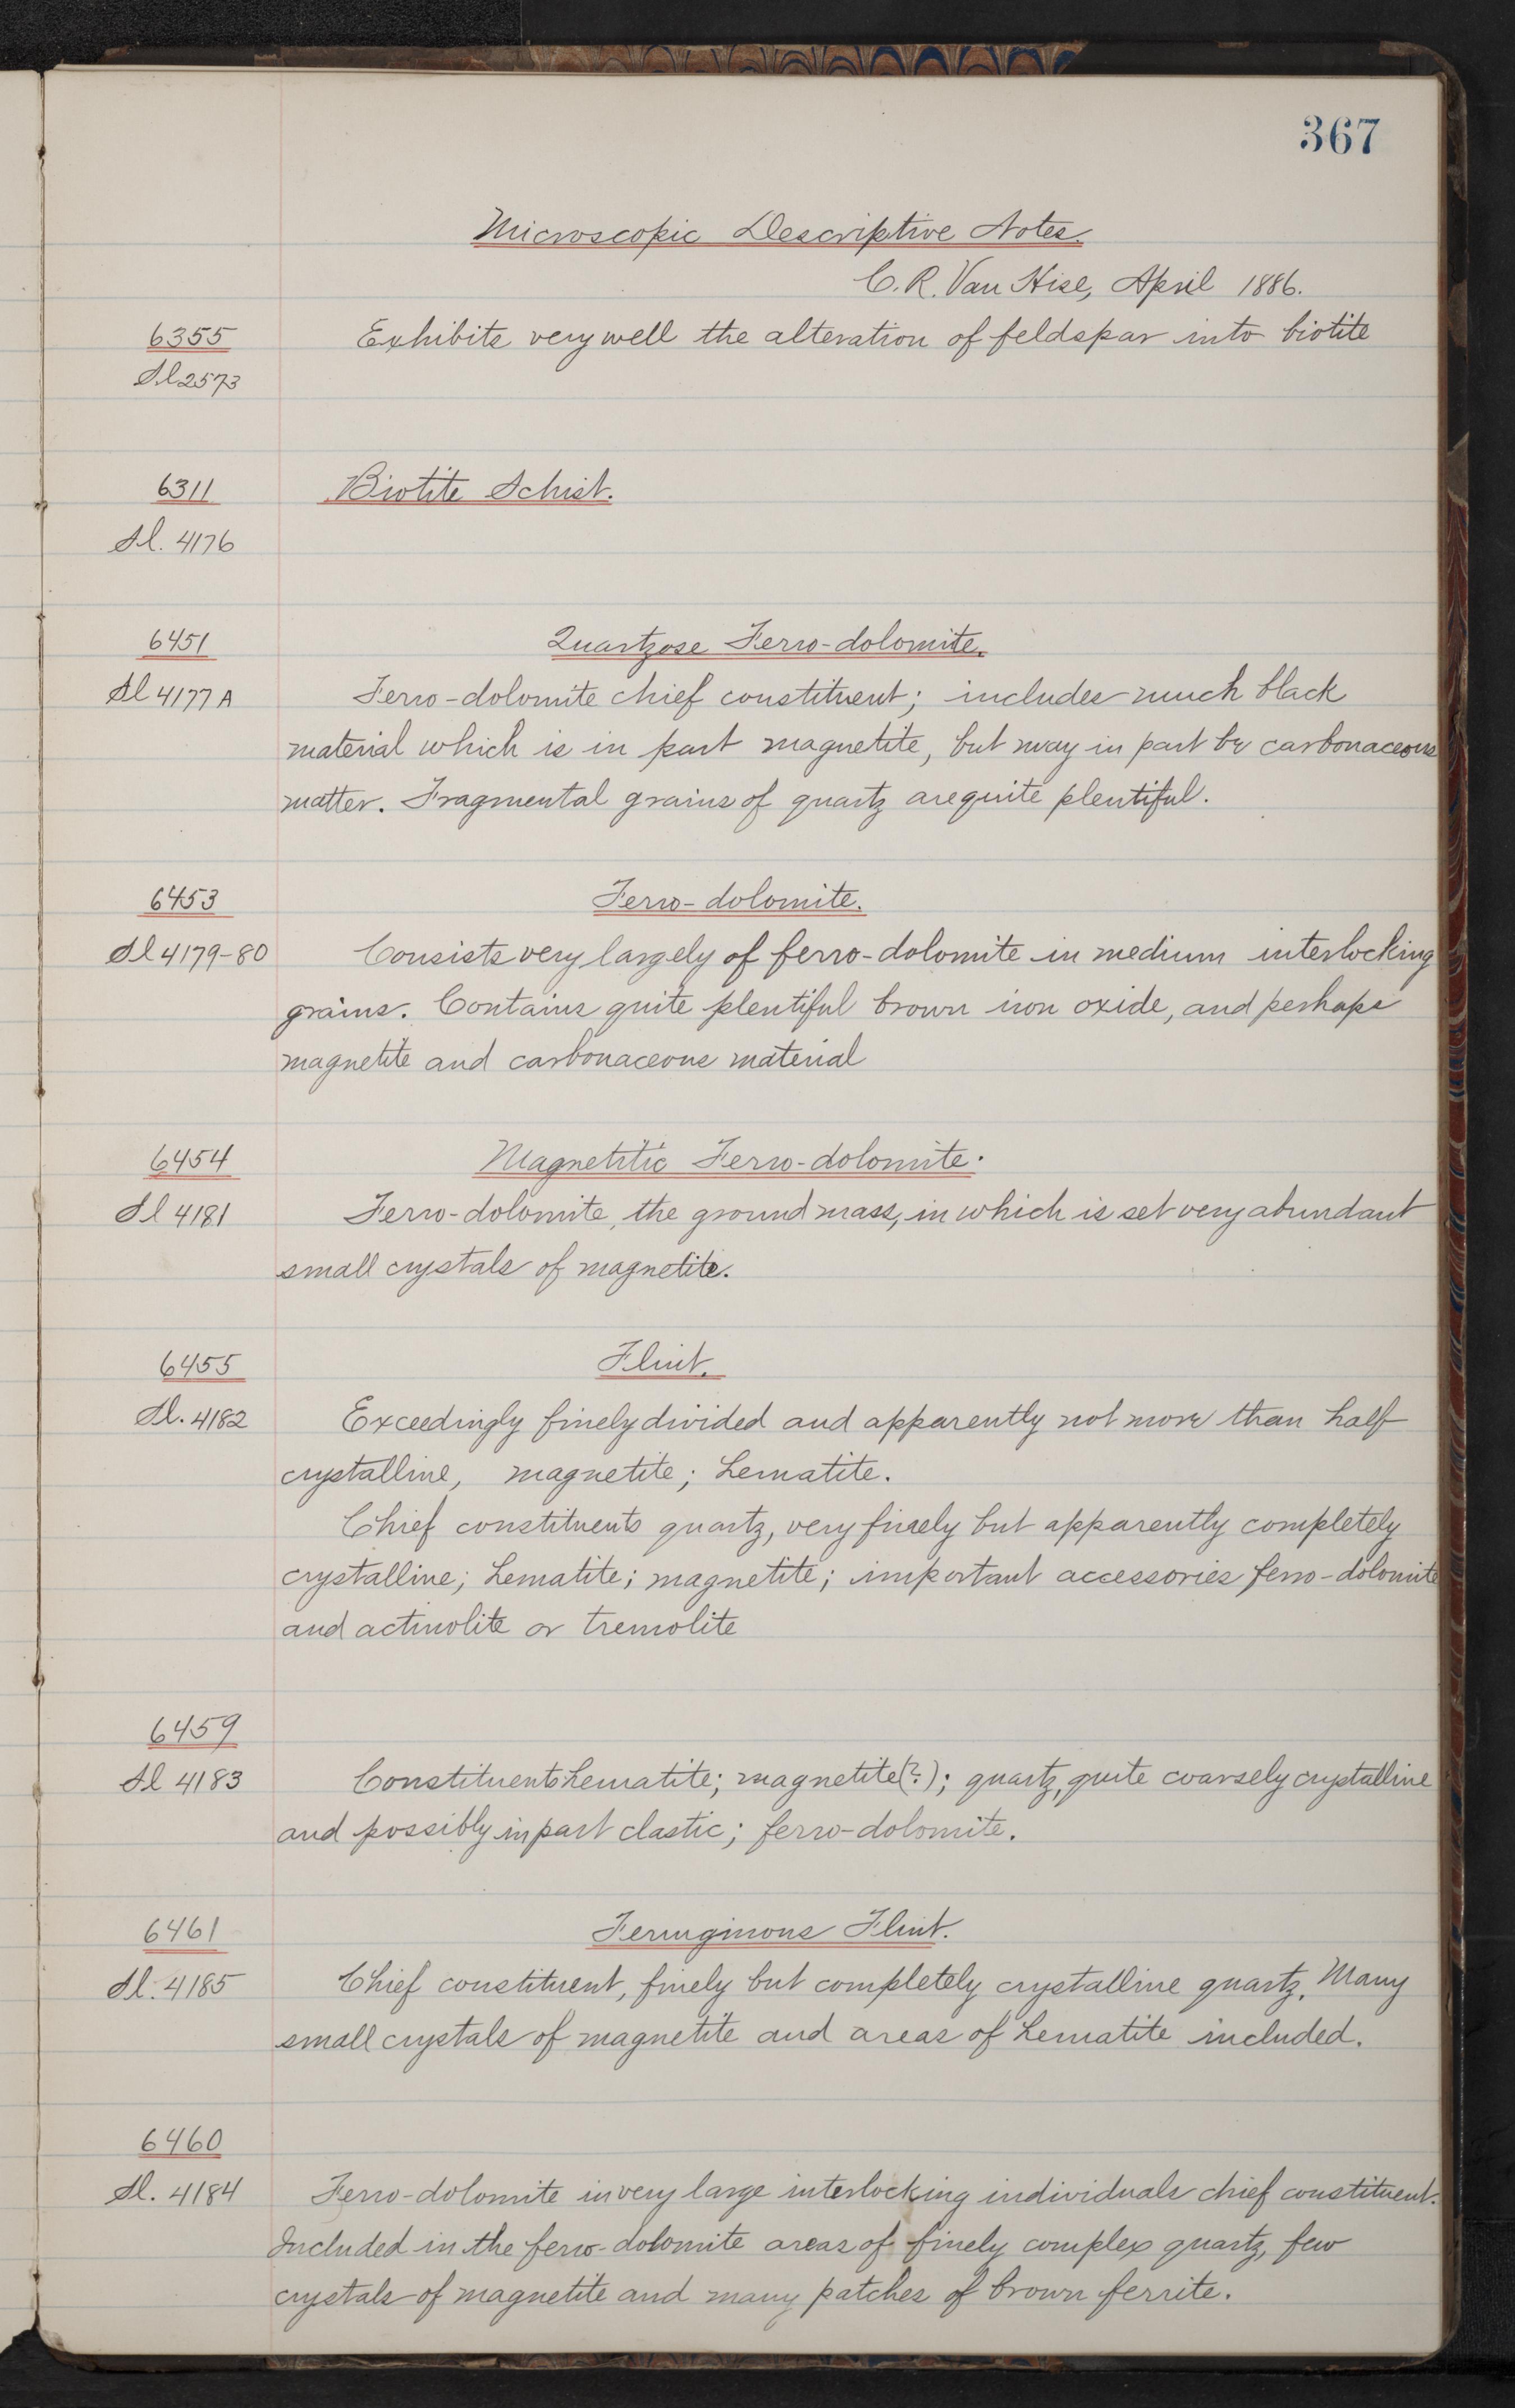 367
Microscopic Descriptive Notes.
C. R. Van Hise, April 1886.
6355 Exhibits very well the alteration of feldspar into biotite
Sl 2573
6311 Biotite Schist.
Sl. 4176
6451 Quartzose Ferro-dolomite.
Sl 4177 A Ferro-dolomite chief constituent; includes much black
material which is in part magnetite, but may in part be carbonaceous
matter. Fragmental grains of quartz are quite plentiful.
6453 Ferro-dolomite.
Sl 4179-80 Consists very largely of ferro-dolomite in medium interlocking
grains. Contains quite plentiful brown iron oxide, and perhaps
magnetite and carbonaceous material
6454 Magnetitic Ferro-dolomite.
Sl 4181 Ferro-dolomite, the ground mass, in which is set very abundant
small crystals of magnetite.
6455 Flint.
Sl. 4182 Exceedingly finely divided and apparently not more than half
crystalline, magnetite; hematite.
Chief constituents quartz, very finely but apparently completely
crystalline; hematite; magnetite; important accessories ferro-dolomite
and actinolite or tremolite
6459
Sl 4183 Constituents hematite; magnetite(?); quartz, quite coarsely crystalline
and possibly in part clastic; ferro-dolomite.
6461 Ferruginous Flint.
Sl. 4185 Chief constituent, finely but completely crystalline quartz. Many
small crystals of magnetite and areas of hematite included.
6460
Sl. 4184 Ferro-dolomite in very large interlocking individuals chief constituent.
Included in the ferro-dolomite areas of finely complex quartz, few
crystals of magnetite and many patches of brown ferrite.